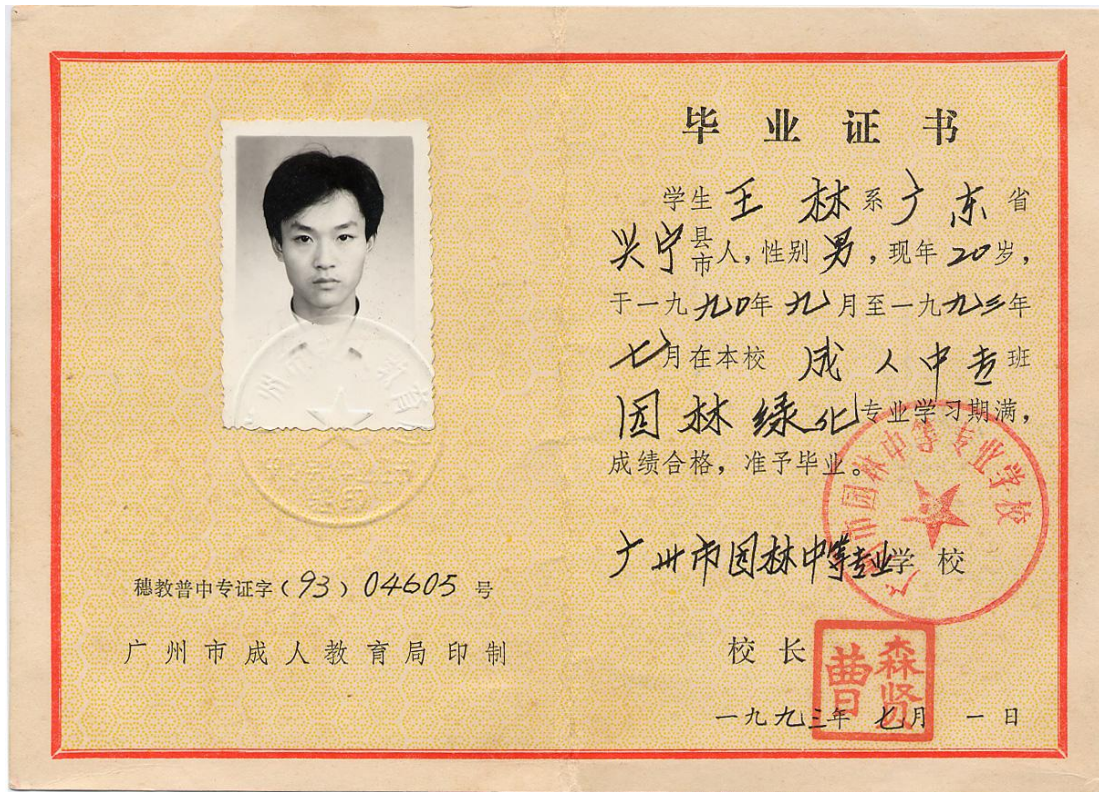 穗教普中专证字(93)04605号
广州市成人教育局印制
毕业证书
学生王林系广东省
兴宁县市人,性别男,现年20岁,
于一九九0年九月至一九九三年
七月在本校成人中专班
园林绿化专业学习期满,
成绩合格,准予毕业。
广州市园林中等专业学校
广州市园林中等专业学校
校长
曹森贤
一九九三年七月一日